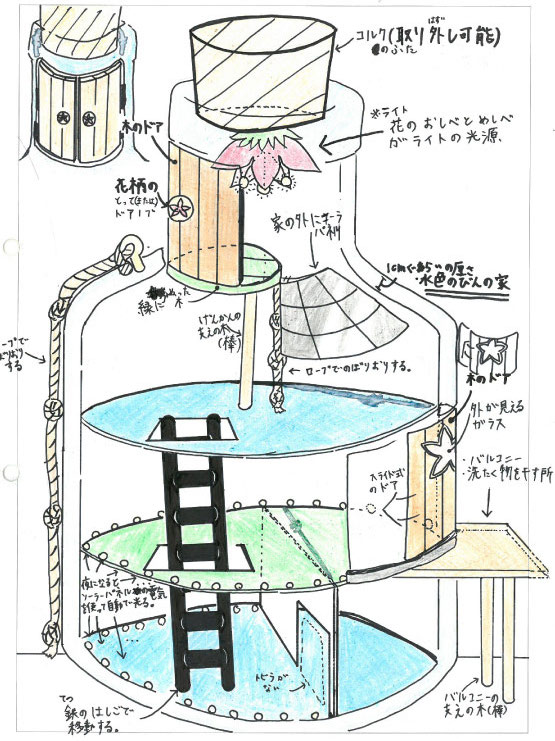 コルク(取り外し可能)
はず
のふた
※ライト
花のおしべとめしべ
がライトの光源
木のドア
花柄の
とって(または)
ドアノブ
家の外にソーラー
パネル
1cmぐらいの厚さ
・水色のびんの家
緑にぬった木
げんかんの
支えの木
(棒)
ロープでのぼりおりする。
ロープで
のぼりおり
する
木のドア
外が見える
ガラス
・バルコニー
・洗たく物を干す所
スライド式
のドア
夜になると
ソーラーパネルの電気
を使って自動で光る。
トビラが
ない
てつ
鉄のはしごで
移動する。
バルコニーの
支えの木(棒)